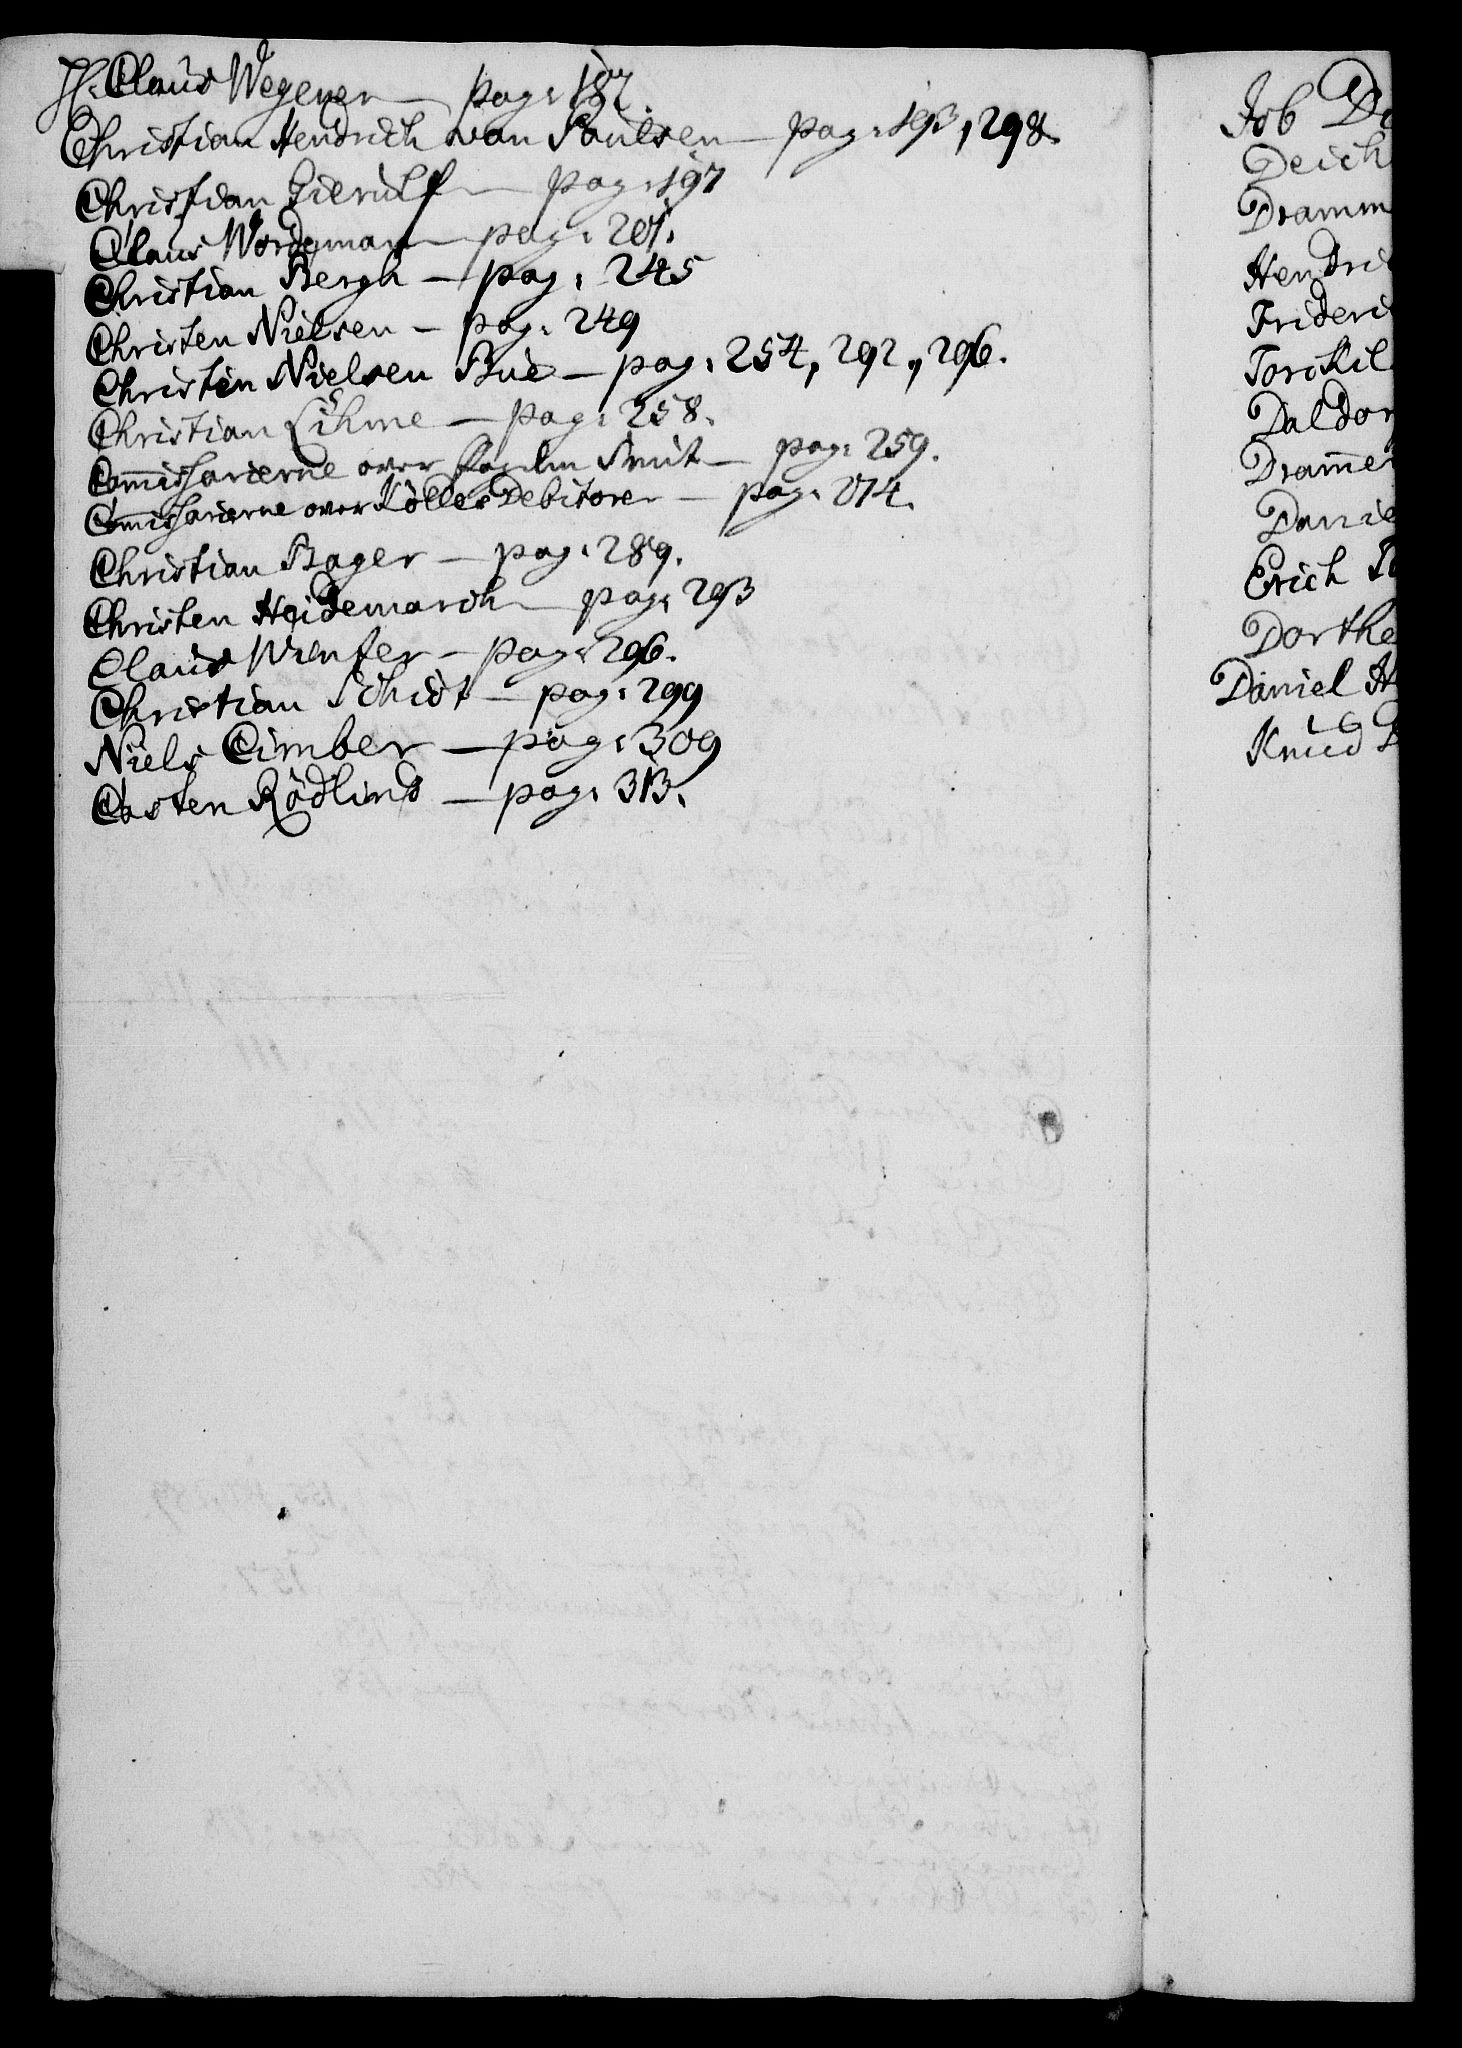 H: Claus Wegener — pag: 187.
Christian Hendrich von Paulsen — pag: 193, 298.
Christian Gierulf — pag: 197
Claus Wordeman — pag: 201.
Christian Bergh — pag: 245
Christen Nielsen — pag: 249
Christen Nielsen Bue — pag: 254, 292, 296.
Christian Lühme — pag: 258.
Com̅issarierne over Smit — pag: 259.
Com̅issarierne over Kölles Debitorer — pag: 274.
Christian Bager — pag: 289.
Christen Heidemarck — pag: 293
Claus Winter — pag: 296.
Christian Schiøt — pag: 299
Niels Cimber — pag: 309
Casten Rödlind — pag: 313.
Job De
Deich
Dramm
Hendri
Frideri
Torckil
Daldor
Dram̅e
Danie
Erich
Dorthe
Daniel H
Knud D